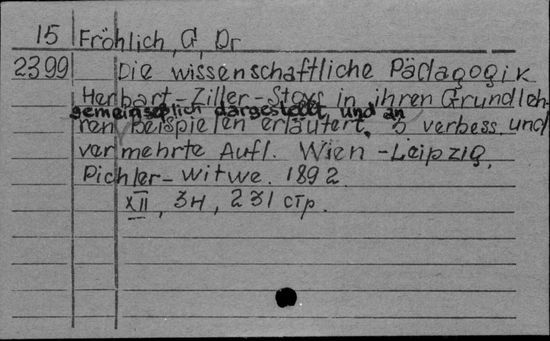 15 Fröhlich, G, Dr
2399 Die wissenschaftliche Pädagogik
Herbart-Ziller-Stoys in ihren Grundleh-
gemeinseblich dargestellt und an
ren beispielen erläutert. 5 verbess. und
vermehrte Aufl. Wien-Leipzig,
Pichler-Witwe. 1892.
XII, 3H, 231 стр.